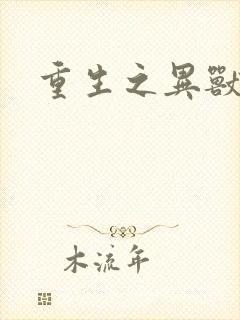 重生之異獸
木流年